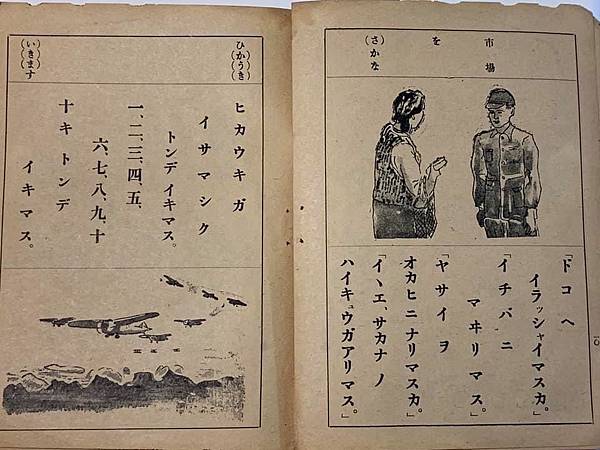 市場
を
(さかな)
「ドコヘ
イラッシャイマスカ。」
「イチバニ
マヰリマス。」
「ヤサイヲ
オカヒニナリマスカ。」
「イヽエ、サカナノ
ハイキュウガアリマス。」
一〇
(ひかうき)
(いきます)
ヒカウキガ
イサマシク
トンデイキマス。
一、二、三、四、五、
六、七、八、九、十
十キトンデ
イキマス。